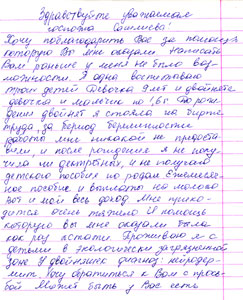 Здравствуйте уважаемая
госпожа
Хочу поблагодарить Вас за помощь
которую Вы мне оказали. Написать
Вам раньше у меня не было воз-
можности. Я одна воспитываю
троих детей Девочка 9 лет и двойнята
девочка и мальчик по 1,6г. До рож-
дения двойнят я стояла на бирже
труда, за период беременности
работы мне никакой не предоста-
вили и после рождения я не полу-
чила ни декретных, и не получаю
детского пособия по родам Ежемесяч-
ное пособие и выплата на молоко
вот и мой весь доход Мне прихо-
дится очень тяжело И помощь
которую вы мне оказали была
как раз кстати. Проживаю я с
детьми в экологически загрязненной
зоне У двойняшек диагноз: нейродер-
мит. Хочу обратиться к Вам с прось-
бой Может быть у Вас есть